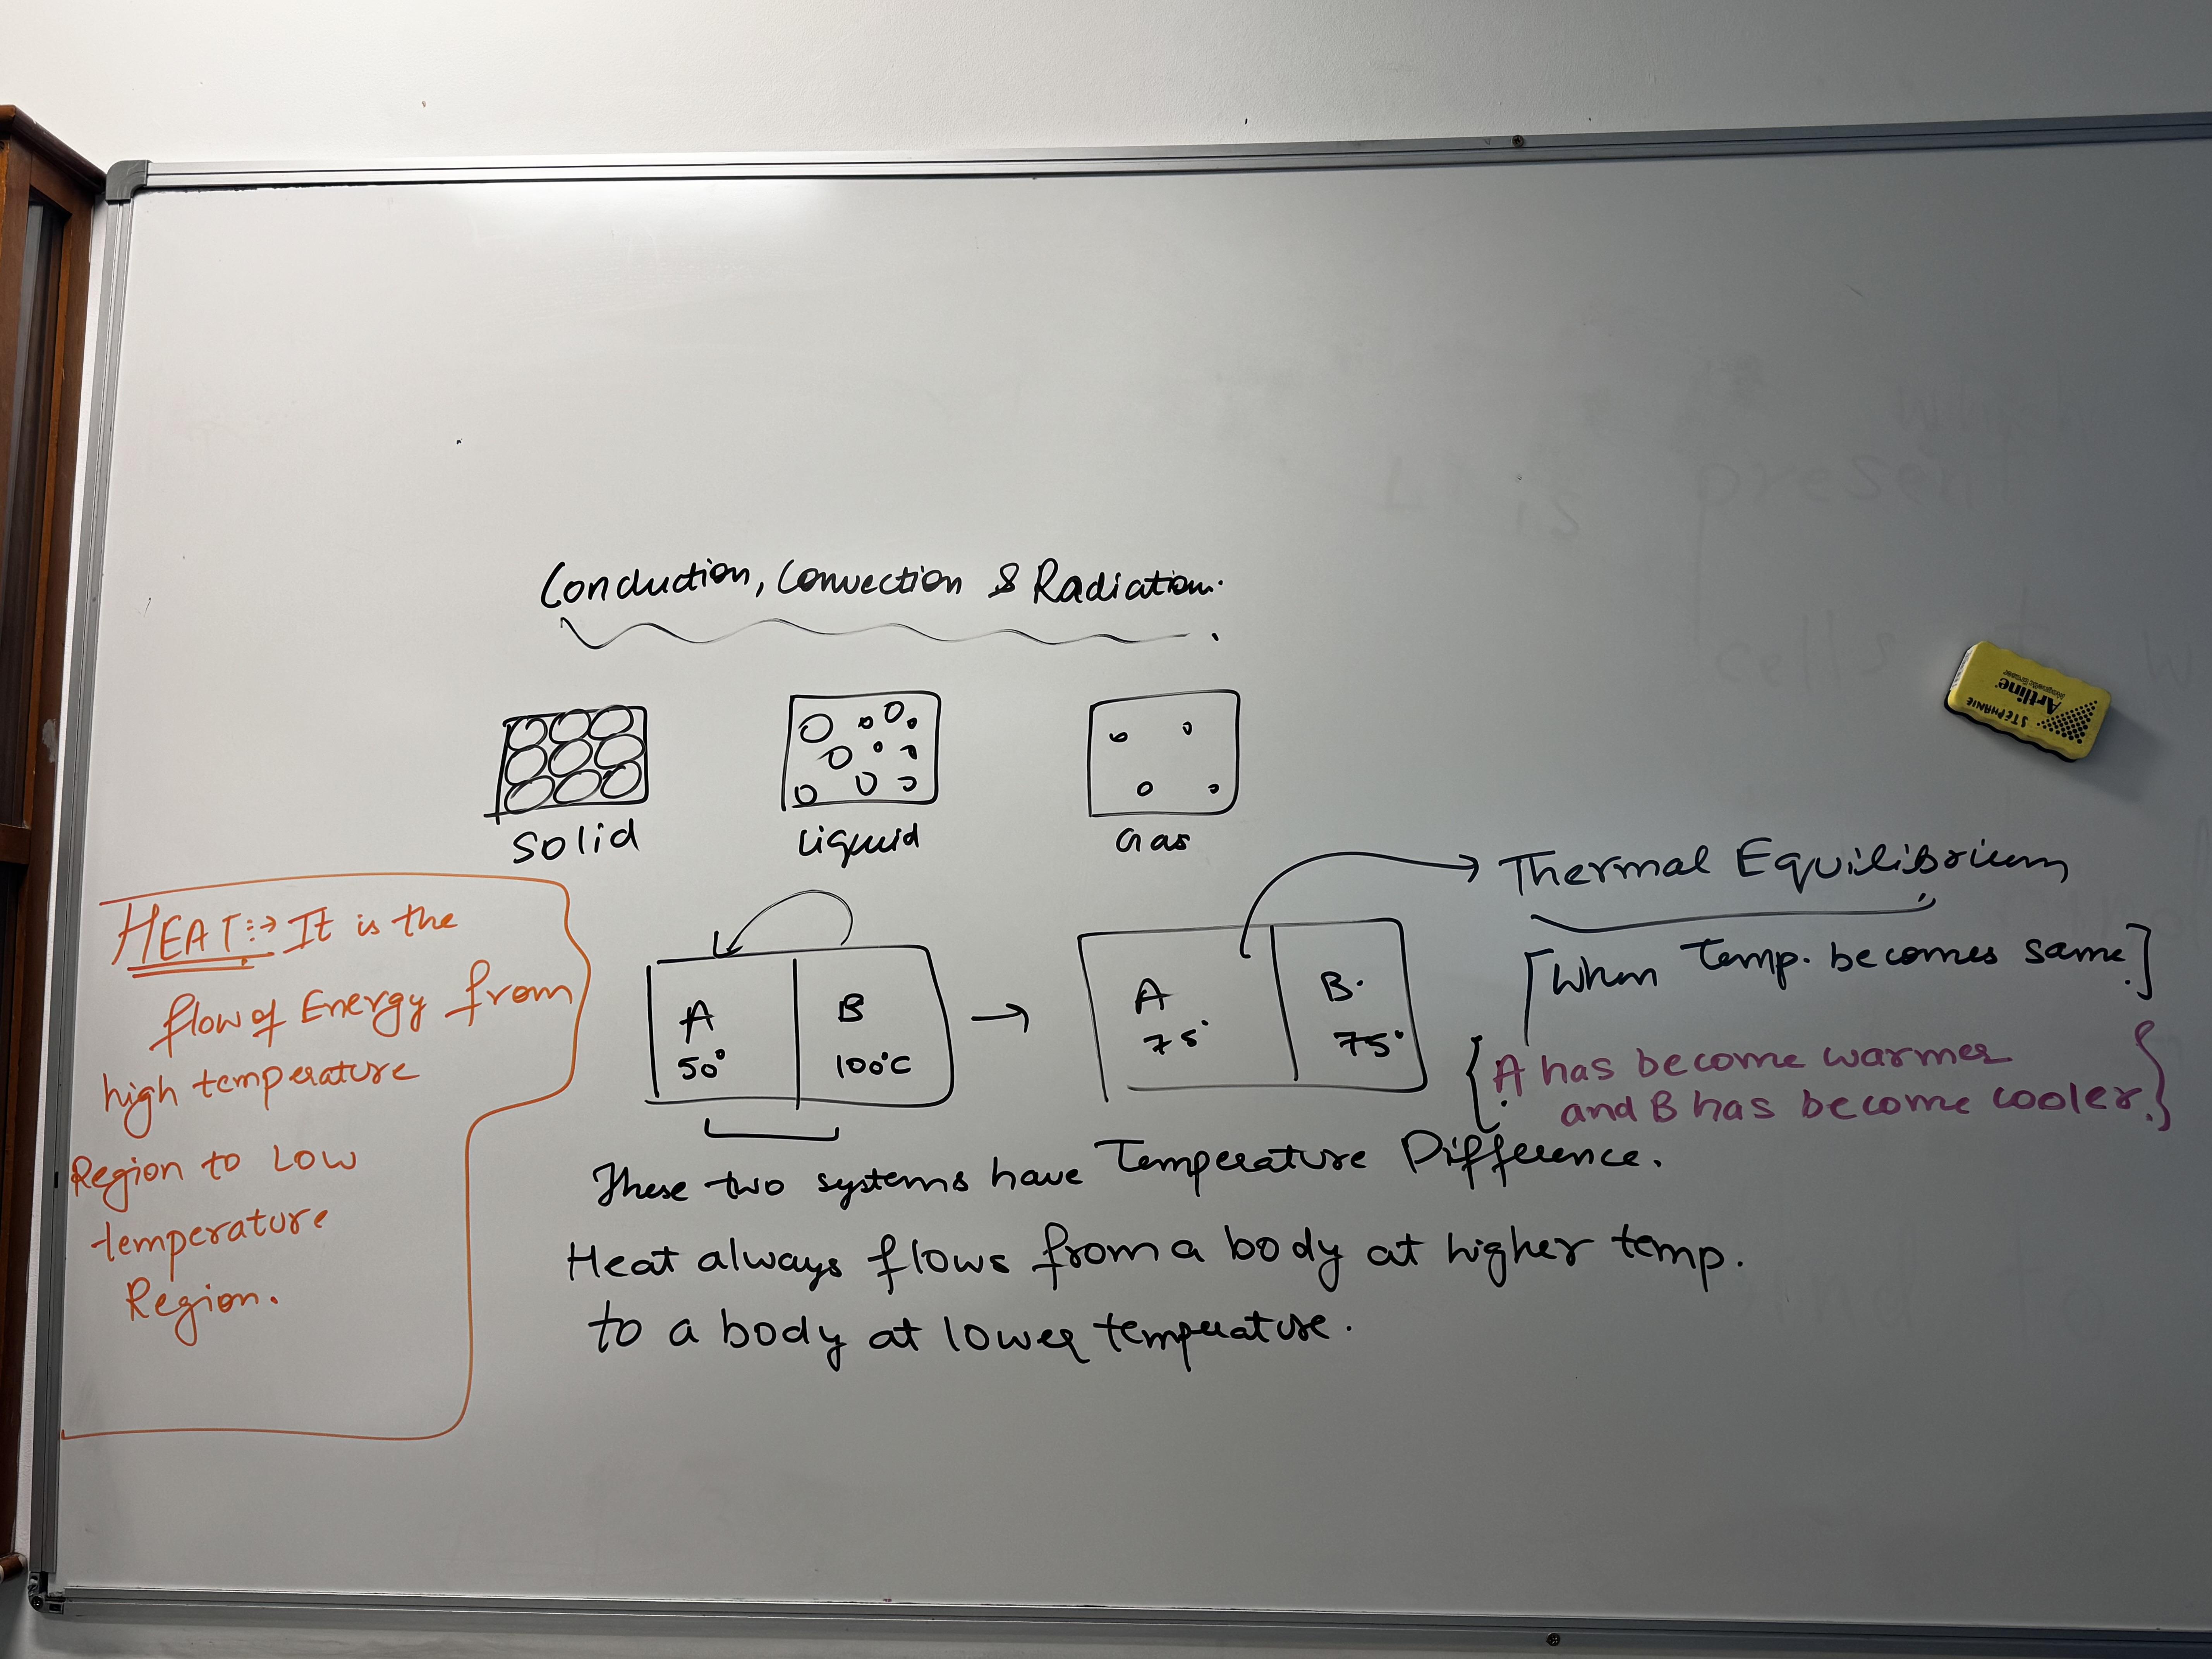 Conduction, Convection & Radiation.
Solid
Liquid
Gas
HEAT :-> It is the
flow of Energy from
high temperature
Region to Low
temperature
Region.
A
50°
B
100°C
→
A
75°
B.
75°
→ Thermal Equilibrium
[When Temp. becomes same.]
{A has become warmer
and B has become cooler.}
These two systems have Temperature Difference.
Heat always flows from a body at higher temp.
to a body at lower temperature.
present
is
cells
STÉPHANIE
Artline